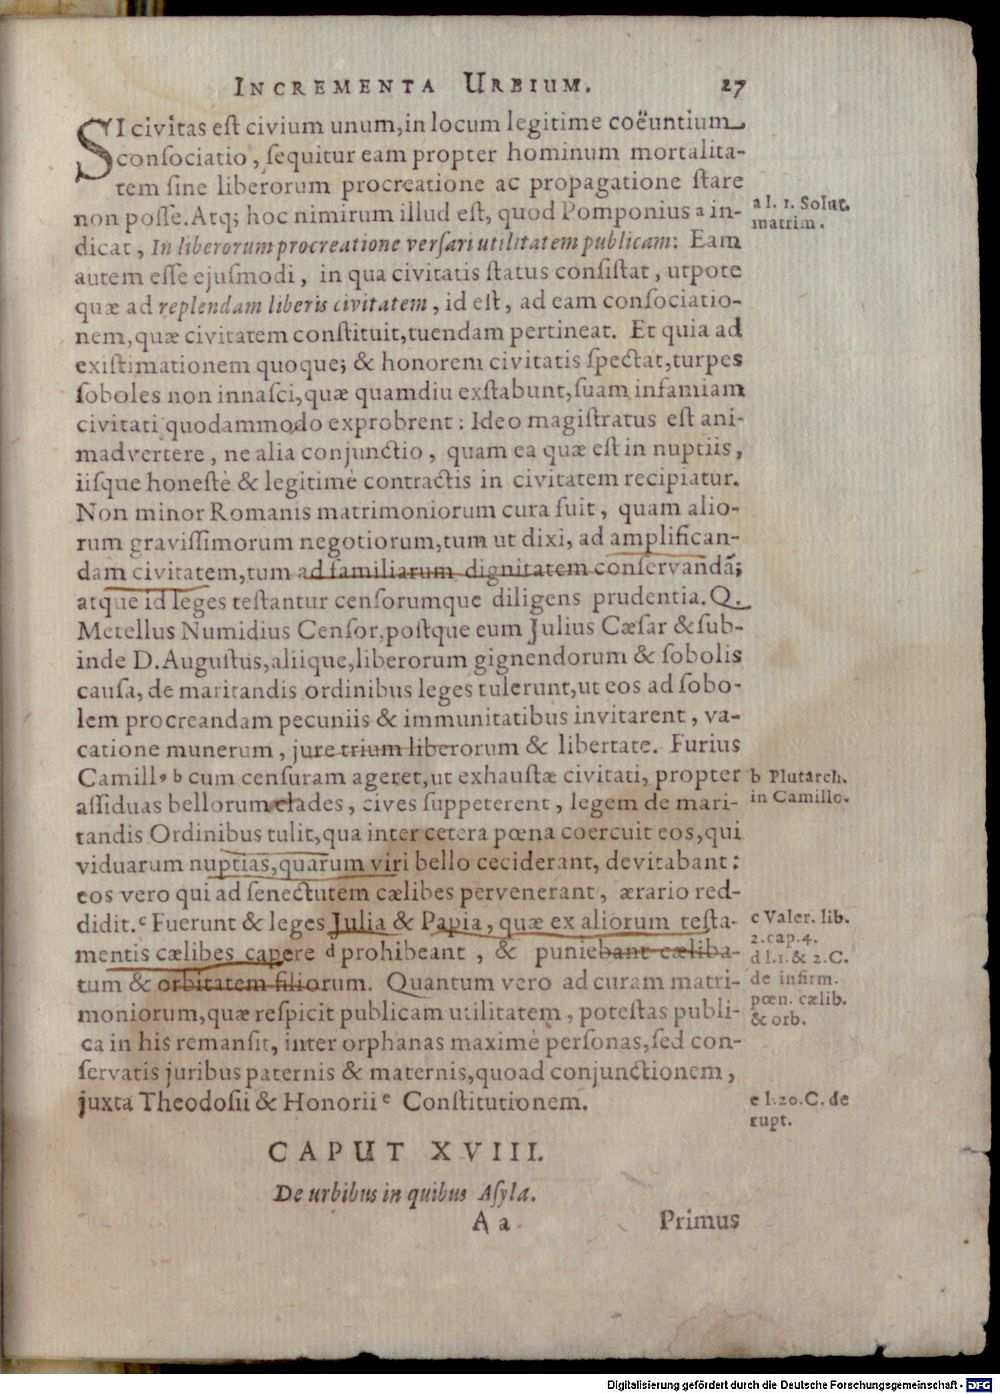 INCREMENTA URBIUM. 27
SI civitas est civium unum, in locum legitime coëuntium
consociatio, sequitur eam propter hominum mortalita-
tem sine liberorum procreatione ac propagatione stare
non posse. Atq; hoc nimirum illud est, quod Pomponius a in-
a l. 1. Solut.
matrim.
dicat, In liberorum procreatione versari utilitatem publicam: Eam
autem esse ejusmodi, in qua civitatis status consistat, utpote
quæ ad replendam liberis civitatem, id est, ad eam consociatio-
nem, quæ civitatem constituit, tuendam pertineat. Et quia ad
existimationem quoque; & honorem civitatis spectat, turpes
soboles non innasci, quæ quamdiu exstabunt, suam infamiam
civitati quodammodo exprobrent: Ideo magistratus est ani-
madvertere, ne alia conjunctio, quam ea quæ est in nuptiis,
iisque honestè & legitimè contractis in civitatem recipiatur.
Non minor Romanis matrimoniorum cura fuit, quam alio-
rum gravissimorum negotiorum, tum ut dixi, ad amplifican-
dam civitatem, tum ad familiarum dignitatem conservandã;
atque id leges testantur censorumque diligens prudentia. Q.
Metellus Numidius Censor, postque eum Julius Cæsar & sub-
inde D. Augustus, aliique, liberorum gignendorum & sobolis
causa, de maritandis ordinibus leges tulerunt, ut eos ad sobo-
lem procreandam pecuniis & immunitatibus invitarent, va-
catione munerum, jure trium liberorum & libertate. Furius
Camill⁹ b cum censuram ageret, ut exhaustæ civitati, propter
b Plutarch.
in Camillo.
assiduas bellorum clades, cives suppeterent, legem de mari-
tandis Ordinibus tulit, qua inter cetera pœna coercuit eos, qui
viduarum nuptias, quarum viri bello ceciderant, devitabant:
eos vero qui ad senectutem cælibes pervenerant, ærario red-
didit. c Fuerunt & leges Julia & Papia, quæ ex aliorum testa-
c Valer. lib.
2. cap. 4.
mentis cælibes capere d prohibeant, & puniebant cæliba-
d l. 1. & 2. C.
de infirm.
pœn. cælib.
& orb.
tum & orbitatem filiorum. Quantum vero ad curam matri-
moniorum, quæ respicit publicam utilitatem, potestas publi-
ca in his remansit, inter orphanas maximè personas, sed con-
servatis juribus paternis & maternis, quoad conjunctionem,
juxta Theodosii & Honorii e Constitutionem.
e l. 20. C. de
rupt.
CAPUT XVIII.
De urbibus in quibus Asyla.
Aa Primus
Digitalisierung gefördert durch die Deutsche Forschungsgemeinschaft - DFG